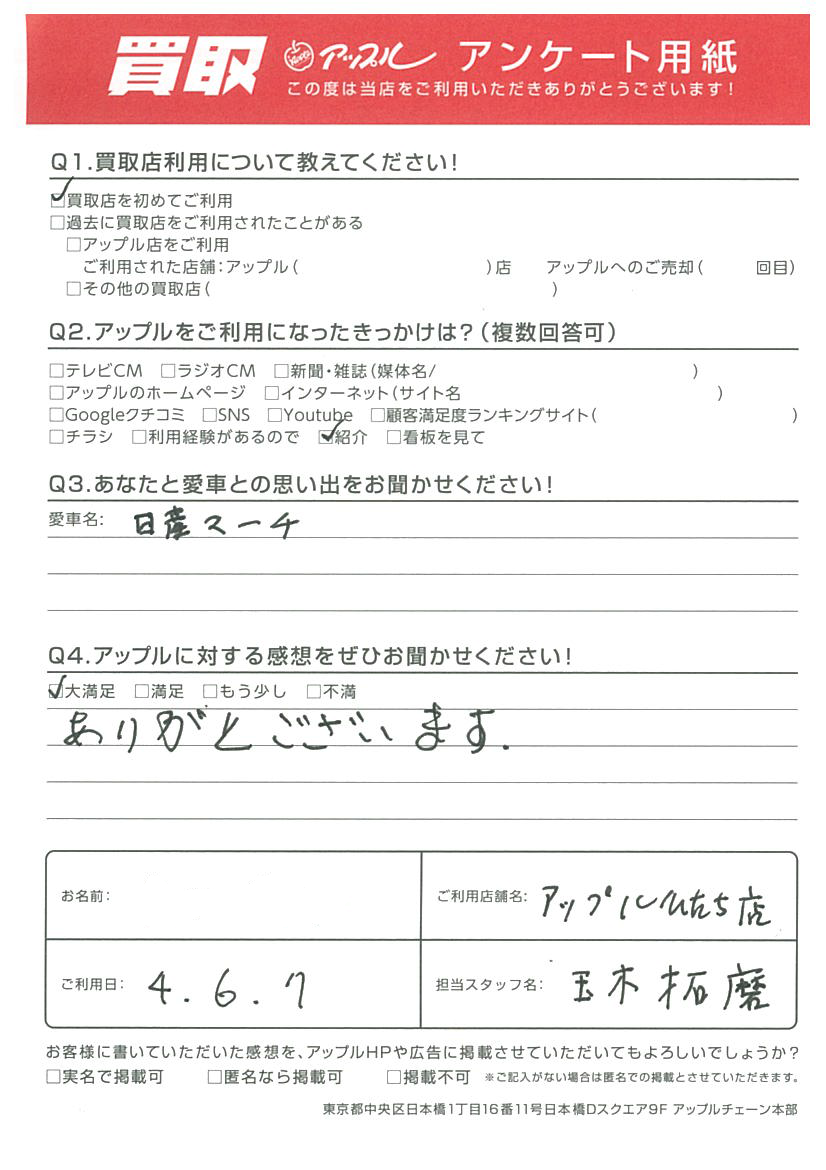 買取 アップル アンケート用紙
この度は当店をご利用いただきありがとうございます!
Q1.買取店利用について教えてください!
☑買取店を初めてご利用
□過去に買取店をご利用されたことがある
□アップル店をご利用
ご利用された店舗:アップル( )店 アップルへのご売却( 回目)
□その他の買取店( )
Q2.アップルをご利用になったきっかけは?(複数回答可)
□テレビCM □ラジオCM □新聞・雑誌(媒体名/ )
□アップルのホームページ □インターネット(サイト名 )
□Googleクチコミ □SNS □Youtube □顧客満足度ランキングサイト( )
□チラシ □利用経験があるので ☑紹介 □看板を見て
Q3.あなたと愛車との思い出をお聞かせください!
愛車名: 日産マーチ
Q4.アップルに対する感想をぜひお聞かせください!
☑大満足 □満足 □もう少し □不満
ありがとございます.
お名前:
ご利用店舗名: アップルひたち店
ご利用日: 4.6.7
担当スタッフ名: 玉木拓磨
お客様に書いていただいた感想を、アップルHPや広告に掲載させていただいてもよろしいでしょうか?
□実名で掲載可 □匿名なら掲載可 □掲載不可 ※ご記入がない場合は匿名での掲載とさせていただきます。
東京都中央区日本橋1丁目16番11号日本橋Dスクエア9F アップルチェーン本部